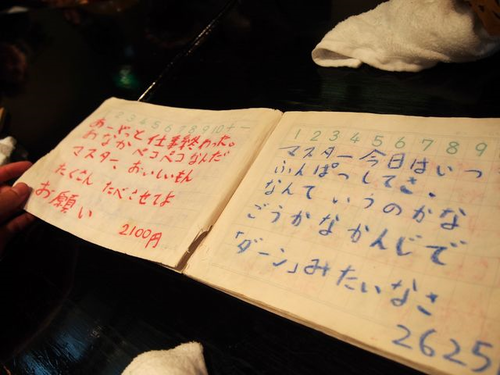 2 3 4 5 6 7 8 9 10 +-
あーどっと仕事終わった。
おなかペコペコなんだ
マスター、おいしいもん
たくさん たべさせてよ
お願い
2100円
1 2 3 4 5 6 7 8 9
マスター今日はいっ
ふんぱつしてさ、
なんていうのかな
ごうかなかんじで
「ダーン」みたいなさ
2625